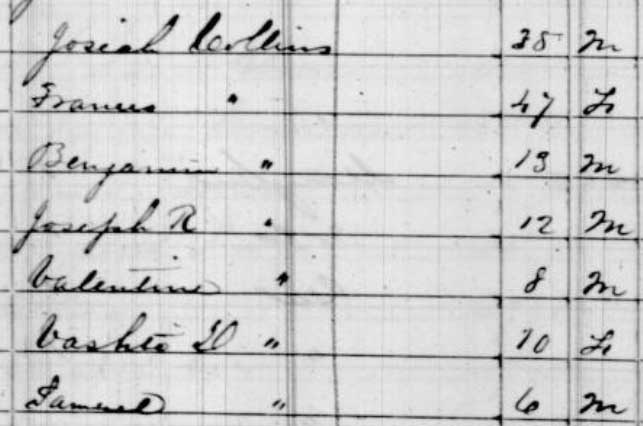 Josiah Collins 38 M
Frances " 47 F
Benjamin " 13 M
Joseph R " 12 M
Valentine " 8 M
Vashti D " 10 F
Samuel " 6 M